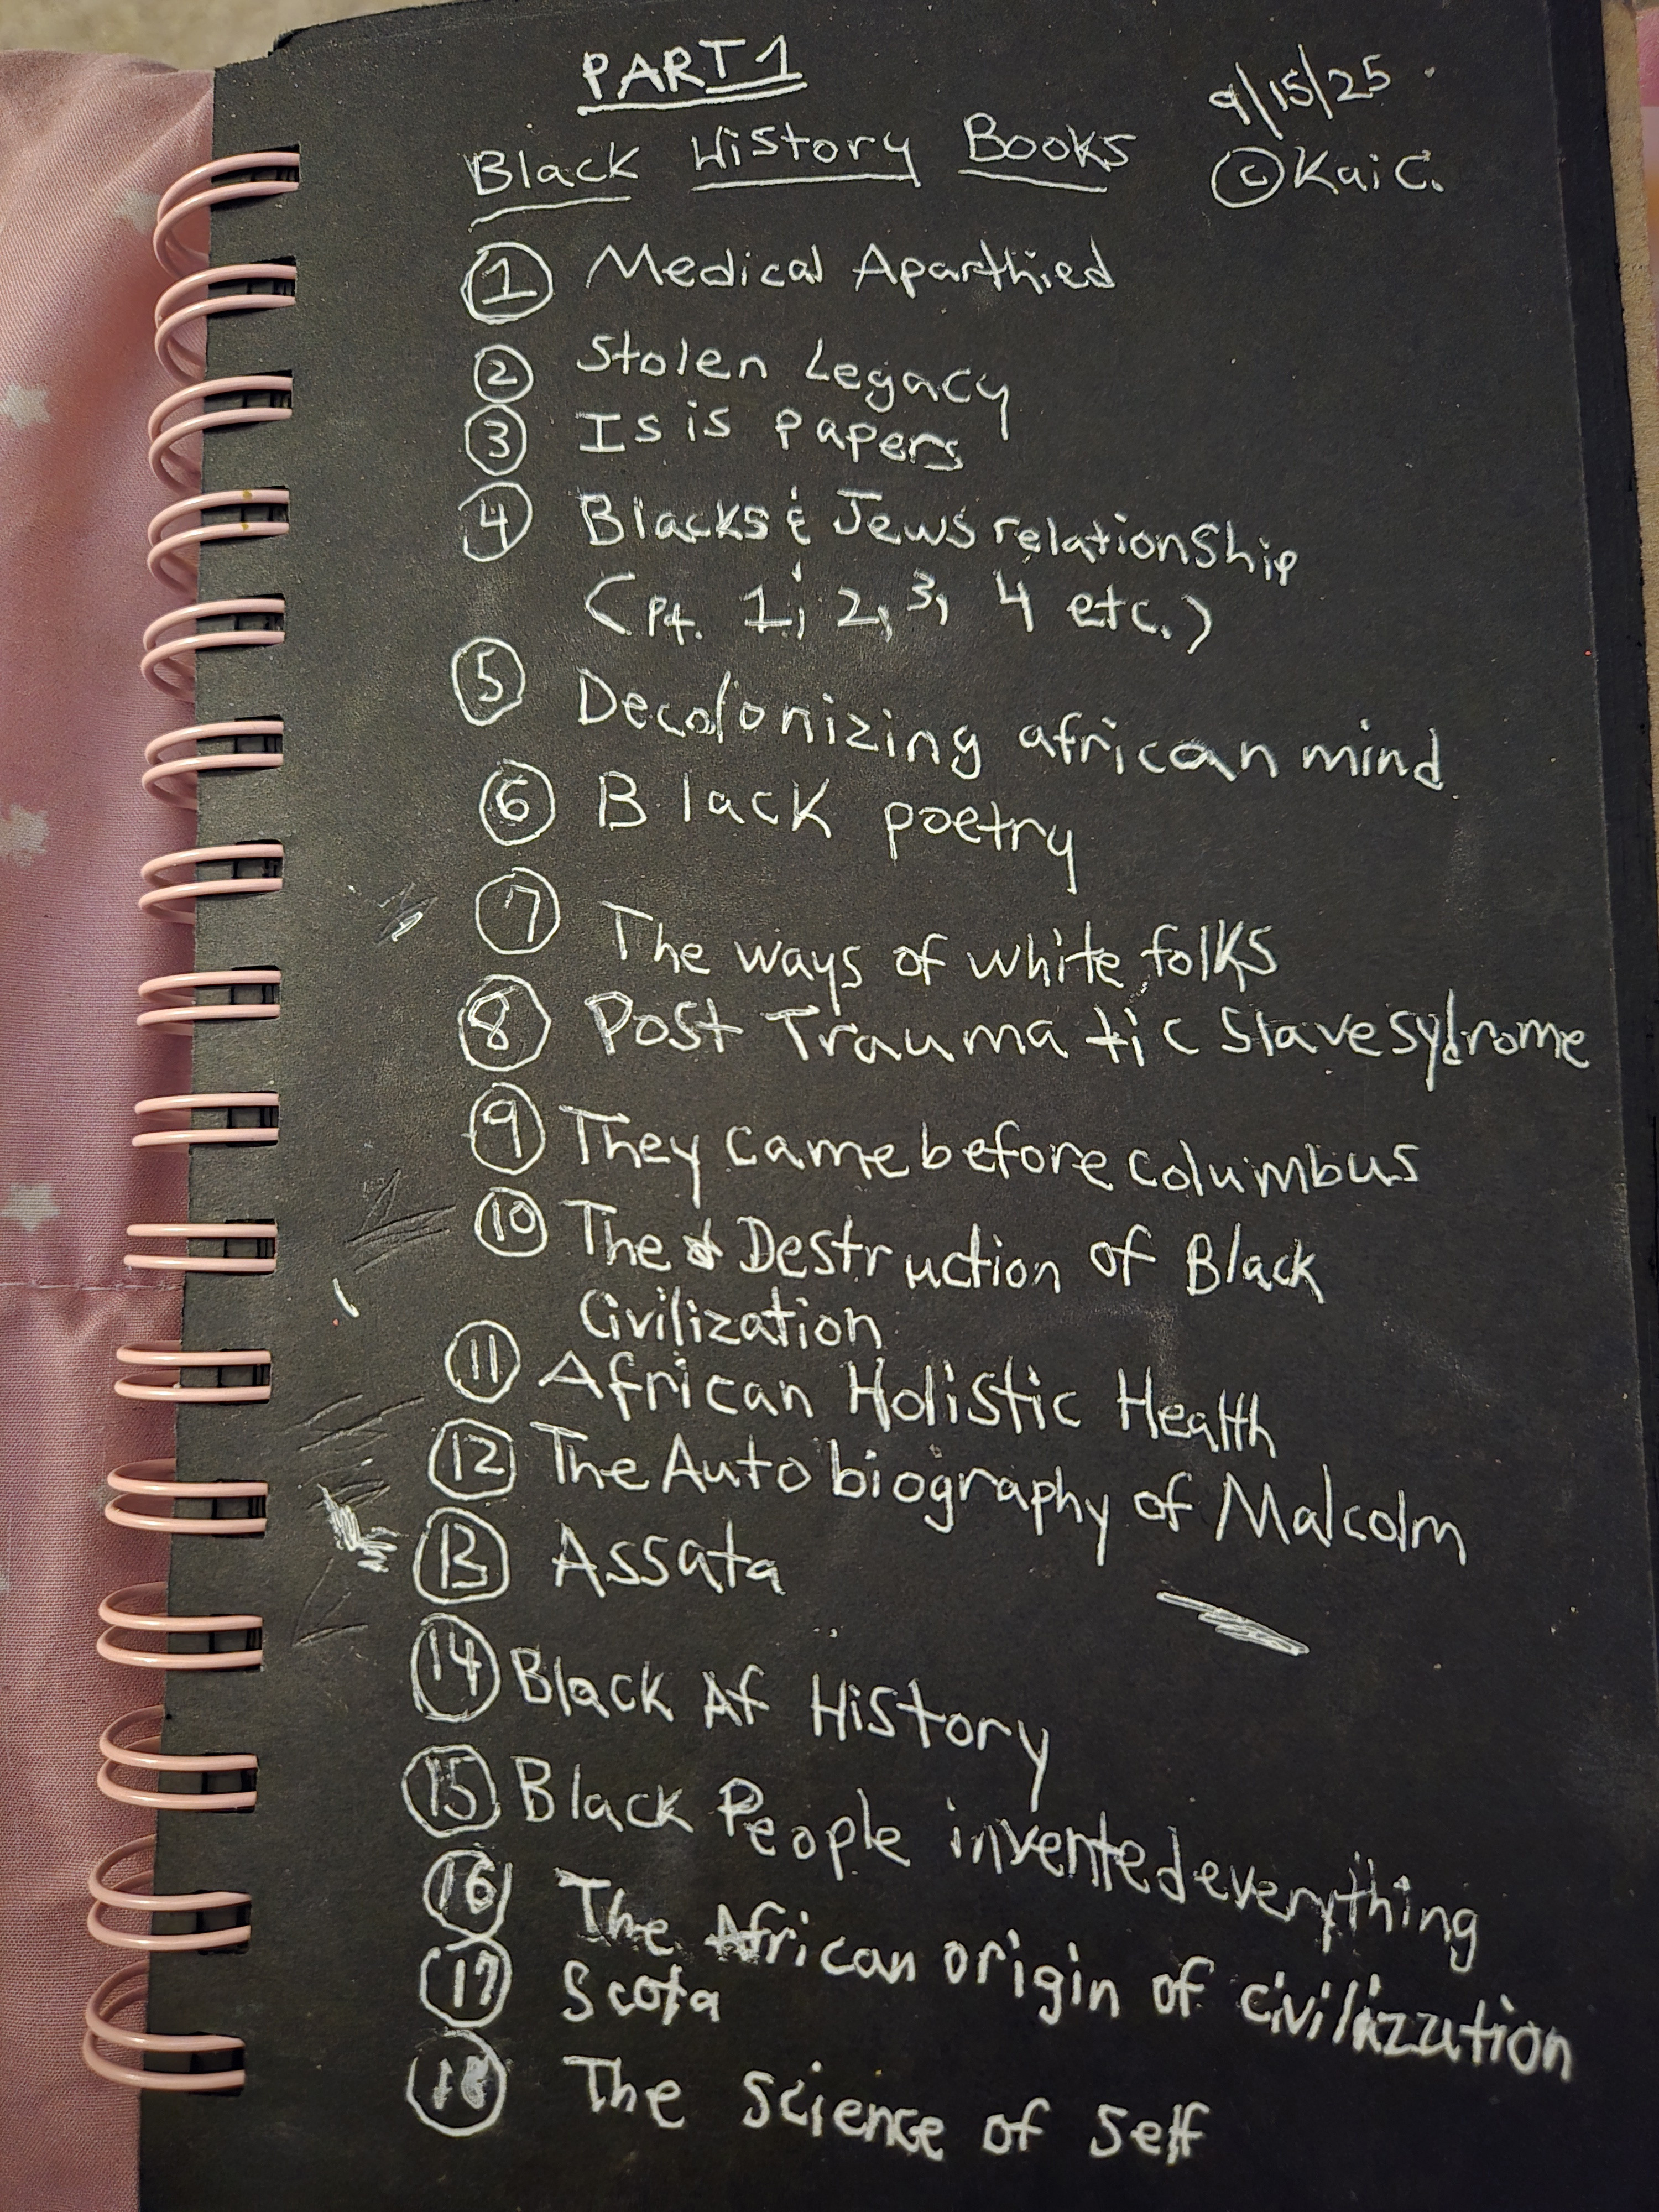 PART 1
9/15/25
Black History Books
©Kai C.
1 Medical Aparthied
2 Stolen Legacy
3 Isis papers
4 Blacks & Jews relationship
(Pt. 1, 2, 3, 4 etc.)
5 Decolonizing african mind
6 Black poetry
7 The ways of white folks
8 Post Traumatic Slave sydrome
9 They came before columbus
10 The Destruction of Black
Civilization
11 African Holistic Health
12 The Autobiography of Malcolm
13 Assata
14 Black Af History
15 Black People invented everything
16 The African origin of civilization
17 Scota
18 The Science of Self